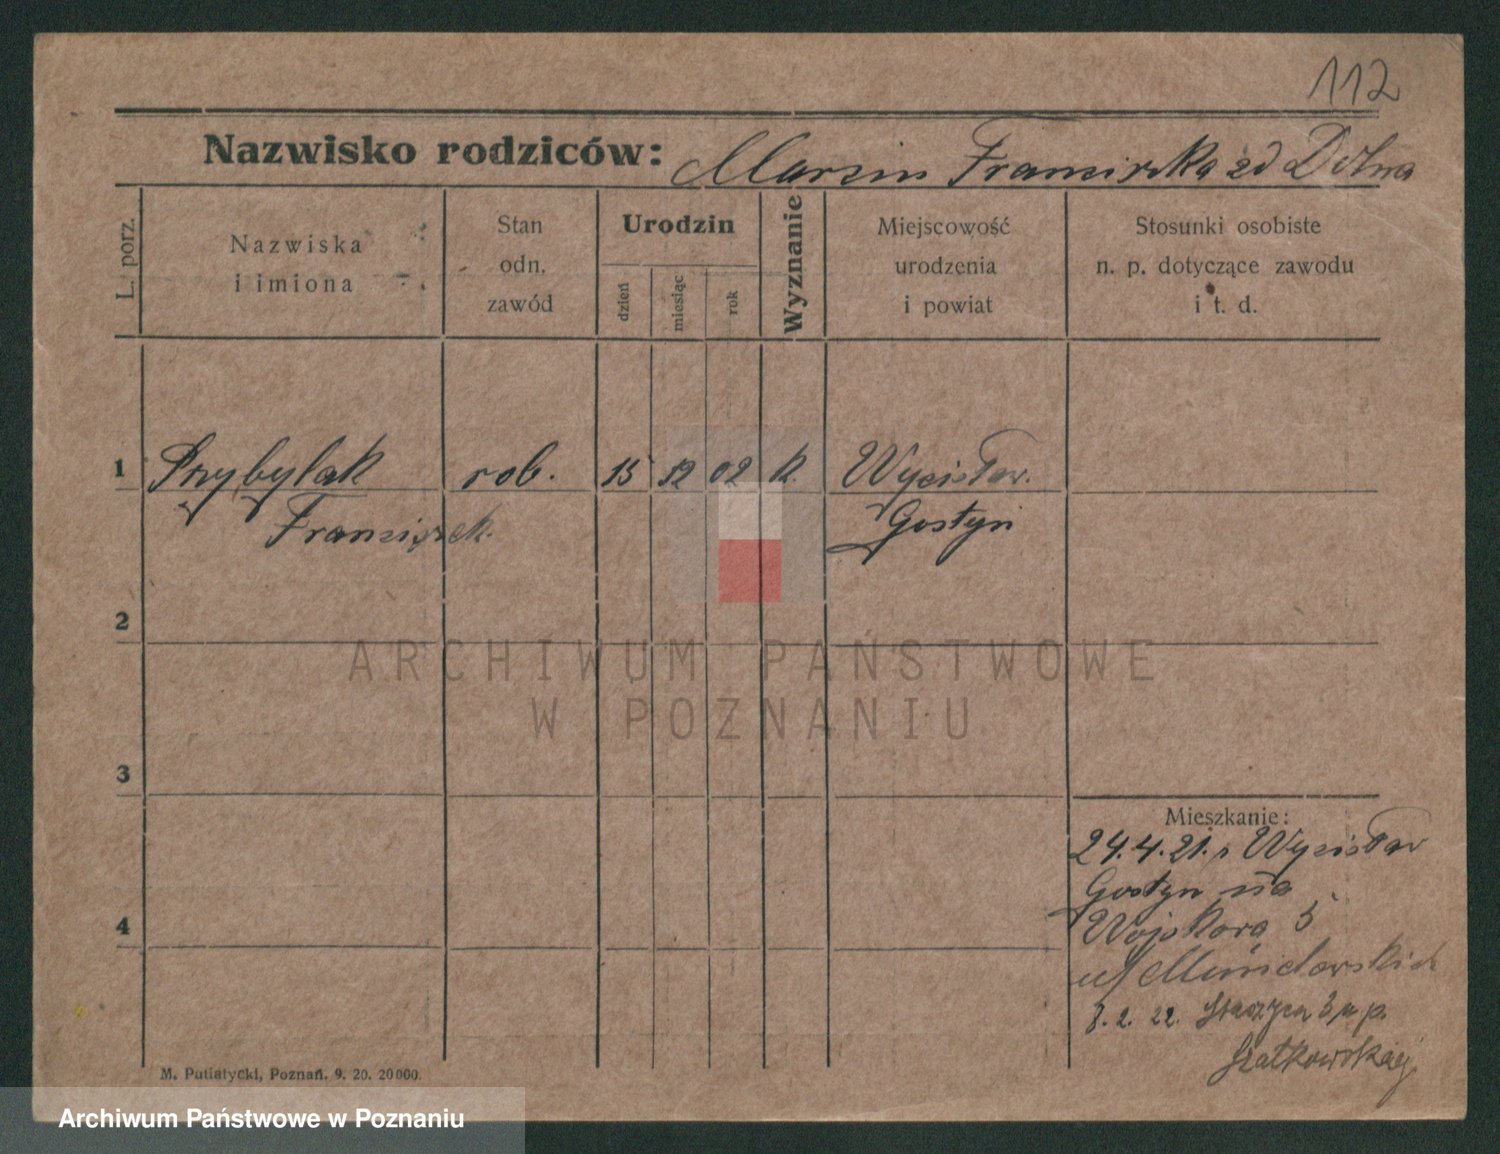 112
Nazwisko rodziców: Marcin Franciszka zd Dolna
L. porz.
Nazwiska
i imiona
Stan
odn.
zawód
Urodzin
dzień
miesiąc
rok
Wyznanie
Miejscowość
urodzenia
i powiat
Stosunki osobiste
n. p. dotyczące zawodu
i t. d.
1 Przybylak rob. 15 12 02 k. Wycisław.
Franciszek. Gostyń
2
3
4
Mieszkanie:
24.4.21. Wycisław
Gostyn na
Wojskowa 5
8.2.22. Staszyca 3
Szatkowskiej
M. Putiatycki, Poznań. 9. 20. 20000.
ARCHIWUM PAŃSTWOWE
W POZNANIU
Archiwum Państwowe w Poznaniu